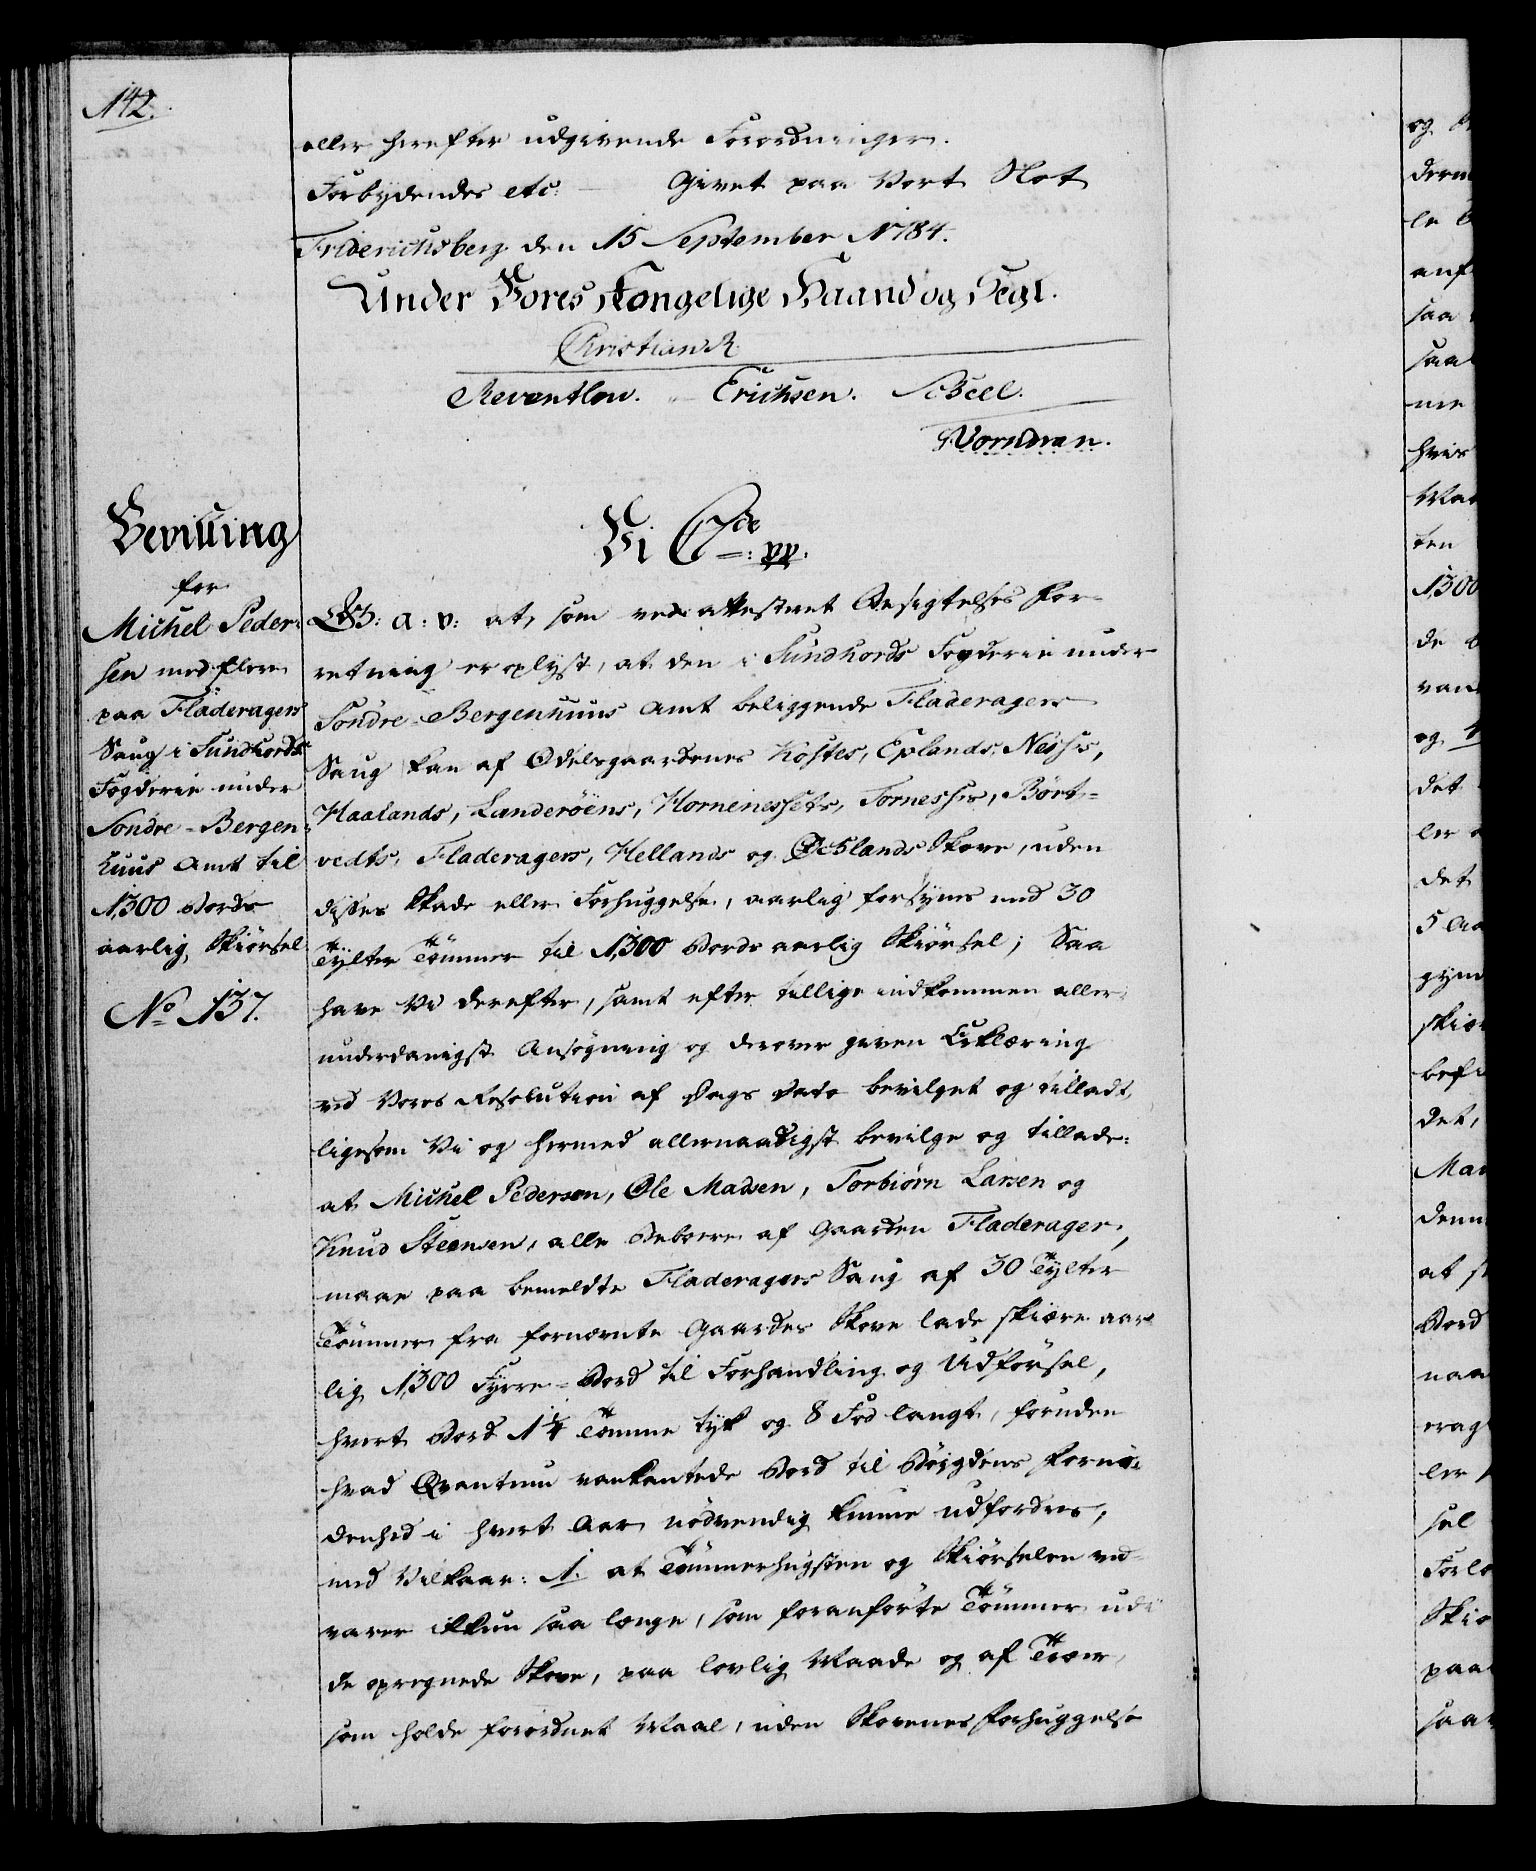 142.
eller herefter udgivende Forordninger.
Forbydendes etc: Givet paa Vort Slot
Friderichsberg den 15 September 1784.
Under Vores Kongelige Haand og Segl.
Christian R.
Reventlow. Erichsen. Scheel.
Vorndran.
Bevilling
for
Michel Peder-
sen med flere
paa Fladeragers
Saug i Sundhords
Fogderie under
Søndre-Bergen-
huus Amt til
1,300 Bords
aarlig Skiørsel
No 137.
Vi C 7de pp.
G: a: v: at, som ved attesteret Besigtelses For-
retning er oplyst, at den i Sundhords Fogderie under
Søndre-Bergenhuus Amt beliggende Fladeragers
Saug kan af Odelsgaardenes Høstes, Eplands, Nesses,
Haalands, Landerøens, Hornenessets, Tornesses, Børt-
vedts, Fladeragers, Hellands og Lands Skove, uden
disses Skade eller Forhuggelse, aarlig forsynes med 30
Tylter Tømmer til 1,300 Bords aarlig Skiørsel; Saa
have Vi derefter, samt efter tillige indkommen aller-
underdanigst Ansøgning og derover given Erklæring
ved Vores Resolution af Dags Dato bevilget og tilladt,
ligesom Vi og hermed allernaadigst bevilge og tillade:
at Michel Pedersen, Ole Madsen, Torbiørn Larsen og
Knud Steensen, alle Beboere af Gaarden Fladerager,
maae paa bemeldte Fladeragers Saug af 30 Tylter
Tømmer fra fornevnte Gaardes Skove lade skiære aar-
lig 1,300 Fyrre-Bord til Forhandling og Udførsel,
hvert Bord 1¼ Tomme tyk og 8 Fod langt, foruden
hvad Qvantum vankantede Bord til Bøigdens Fornø-
denhed i hvert Aar nødvendig kunne udfordres,
med Vilkaar: 1. at Tømmerhugsten og Skiørselen ved-
varer ikkun saa længe, som foranførte Tømmer udi
de opregnede Skove, paa lovlig Maade og af Træer,
som holde forordnet Maal, uden Skovenes Forhuggelse